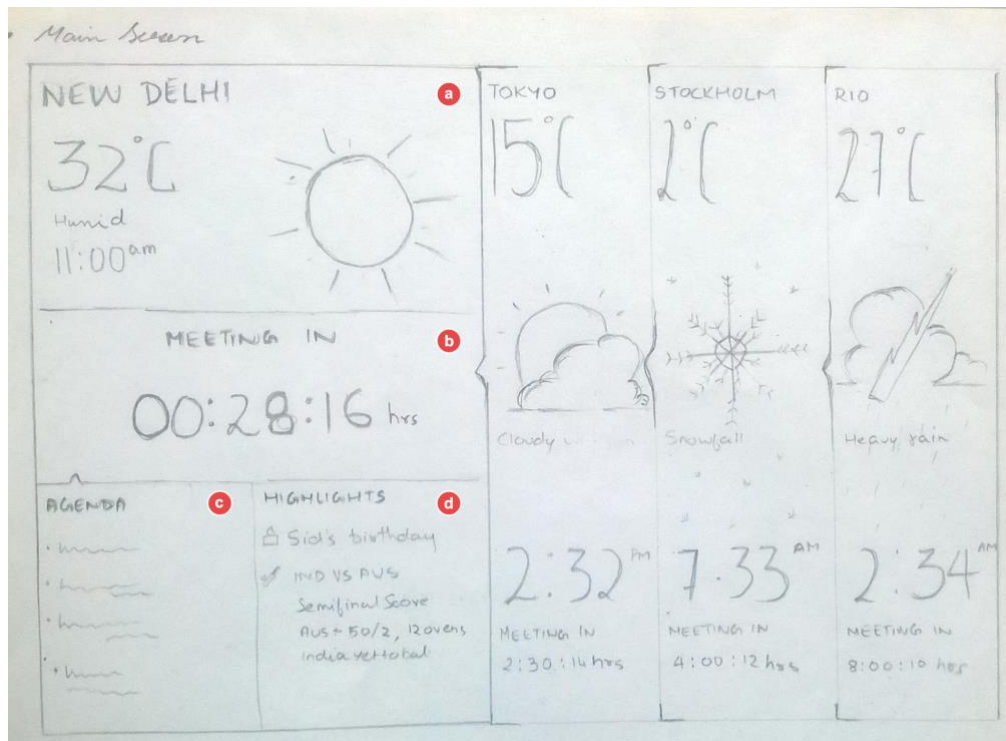 Main Screen
NEW DELHI
a
32°C
Humid
11:00 am
MEETING IN
b
00:28:16 hrs
AGENDA
c
HIGHLIGHTS
d
Sid's birthday
IND VS AUS
Semifinal Score
AUS - 50/2, 12 overs
india yet to bat
TOKYO
15°C
Cloudy
2:32 PM
MEETING IN
2:30:14 hrs
STOCKHOLM
2°C
Snowfall
7.33 AM
MEETING IN
4:00:12 hrs
RIO
27°C
Heavy rain
2:34 AM
MEETING IN
8:00:10 hrs